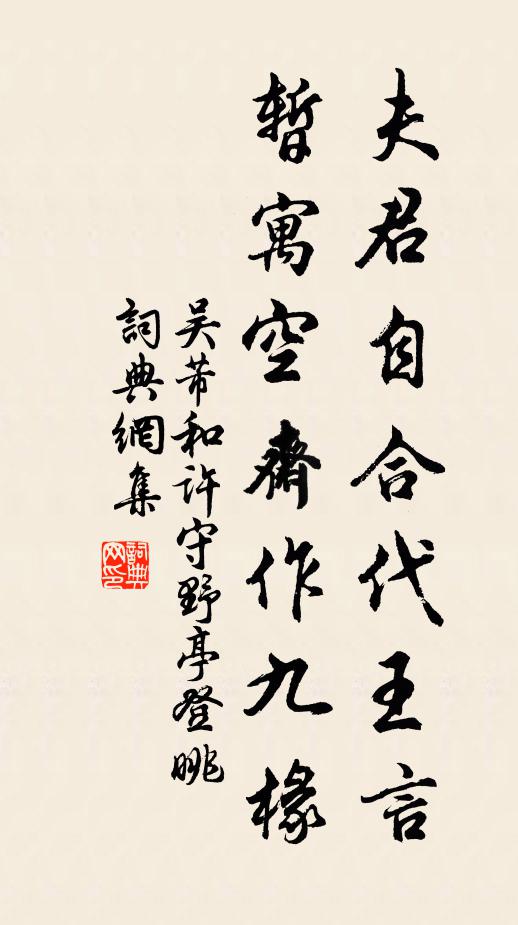 夫君自合代王言
暫寓空齋作九椽
吴芾和許守野亭登眺
詞典網集
詞典網印